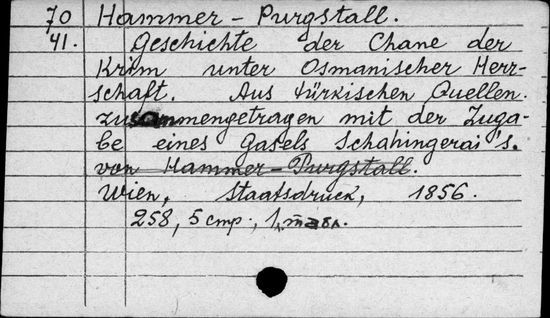 70 Hammer-Purgstall.
41. Geschichte der Chane der
Krim unter Osmanischer Herr-
schaft. Aus türkischen Quellen
zusammengetragen mit der Zuga-
be eines Gasels Schahingerai's.
von Hammer-Purgstall.
Wien, Staatsdruck, 1856.
258, 5 стр., 1 табл.